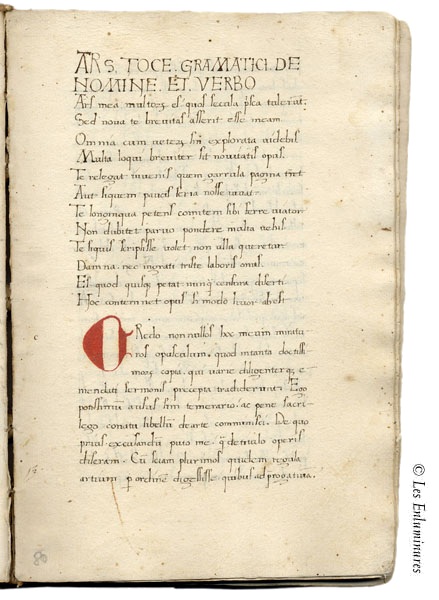 ARS. FOCE. GRAMATICI. DE
NOMINE. ET. VERBO
Ars mea multoꝝ es quos secula pͥsca tulerunt:
Sed noua te breuitas asserit esse meam.
Omnia cum ueteꝝ sint explorata uidebis
Multa loqui breuiter sit nouitatis opus.
Te relegat iuuenis quem garrula pagina terret
Aut siquem paucis seria nosse iuuat.
Te longinqua petens comitem sibi ferre uiator
Non dubitet paruo pondere multa uehis
Te siquis scripsisse uolet non ulla queretur
Damna nec ingrati triste laboris onus.
Est quod quisqꝫ petat: nunqͣ censura diserti
Hoc contemnet opus si modo liuor abest
CRedo non nullos hoc meum miratu
ros opusculum. quod in tanta doctissi
moꝝ copia. qui uarie diligenterqꝫ e-
mendati sermonis precepta tradiderunt. Ego
potissimum ausus sim temerario. ac pene sacri
lego conatu libellum de arte communisci. De quo
prius excusandum puto me. qͣ de titulo operis
diseram. Cum sciam plurimos quidem regula
artium per ordinem digessisse. quibus ad prerogatiuam.
80
© Les Enluminures